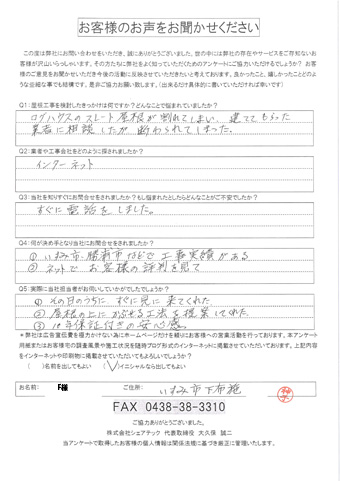 お客様のお声をお聞かせください
この度は弊社にお問い合わせをいただき、誠にありがとうございました。世の中には弊社の存在やサービスをご存知ないお
客様が沢山いらっしゃいます。その方たちに弊社をよく知っていただくためのアンケートにご協力いただけるでしょうか？お客
様のご意見をお聞かせいただき今後の活動に反映させていただきたいと考えております。良かったこと、嬉しかったことどのよ
うな些細な事でも結構です。是非ご協力お願い致します。（出来るだけ具体的に書いていただければ幸いです）
Q1：屋根工事を検討したきっかけは何ですか？どんなことで悩まれていましたか？
ログハウスのスレート屋根が割れてしまい、建ててもらった
業者に相談したが断わられてしまった。
Q2：業者や工事会社をどのように探されましたか？
インターネット
Q3：当社を知りすぐにお問合せをされましたか？もし悩まれたとしたらどんなことがご不安でしたか？
すぐに電話をしました。
Q4：何が決め手となり当社にお問合せをされましたか？
① いすみ市、勝浦市などで工事実績がある
② ネットでお客様の評判を見て
Q5：実際に当社担当者がお伺いしていかがでしたでしょうか？
① その日のうちに、すぐに見に来てくれた
② 屋根の上にかぶせる工法を提案してくれた
③ 10年保証付きの安心感。
＊弊社は広告宣伝費を極力かけない為にホームページだけを頼りにお客様への営業活動を行っております。本アンケート
用紙またはお客様宅の調査風景や施工状況を随時ブログ形式のインターネットに掲載させていただいております。上記内容
をインターネットや印刷物に掲載させていただいてもよろしいでしょうか？
（ ）名前を出してもよい （✓）イニシャルなら出してもよい
お名前： F様 ご住所： いすみ市下布施
FAX 0438-38-3310
ご協力ありがとうございました。
株式会社シェアテック 代表取締役 大久保 誠二
当アンケートで取得したお客様の個人情報は関係法規に基づき厳正に管理いたします。